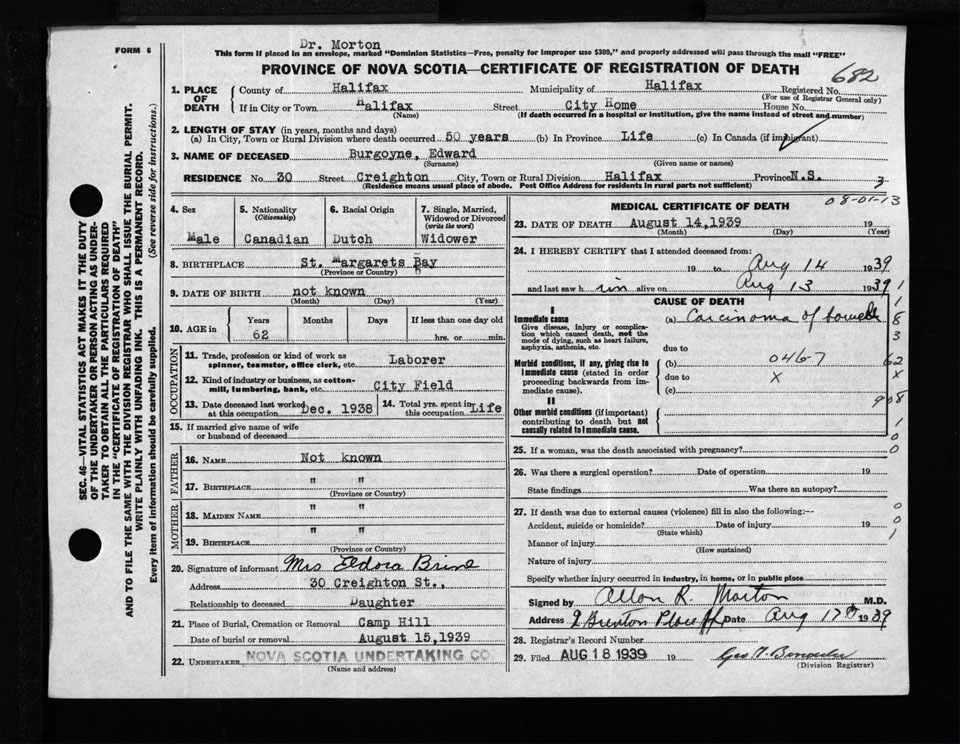 Dr. Morton
FORM 6
This form if placed in an envelope, marked "Dominion Statistics—Free, penalty for improper use $300," and properly addressed will pass through the mail "FREE"
PROVINCE OF NOVA SCOTIA—CERTIFICATE OF REGISTRATION OF DEATH
682
1. PLACE OF DEATH
County of Halifax Municipality of Halifax Registered No.
(For use of Registrar General only)
If in City or Town Halifax Street City Home House No.
(Name) (If death occurred in a hospital or institution, give the name instead of street and number)
2. LENGTH OF STAY (in years, months and days)
(a) In City, Town or Rural Division where death occurred 50 years (b) In Province Life (c) In Canada (if immigrant)
3. NAME OF DECEASED Burgoyne, Edward
(Surname) (Given name or names)
RESIDENCE No. 30 Street Creighton City, Town or Rural Division Halifax Province N.S.
(Residence means usual place of abode. Post Office Address for residents in rural parts not sufficient)
3
08-01-13
SEC. 46—VITAL STATISTICS ACT MAKES IT THE DUTY
OF THE UNDERTAKER OR PERSON ACTING AS UNDER-
TAKER TO OBTAIN ALL THE PARTICULARS REQUIRED
IN THE "CERTIFICATE OF REGISTRATION OF DEATH"
AND TO FILE THE SAME WITH THE DIVISION REGISTRAR WHO SHALL ISSUE THE BURIAL PERMIT.
WRITE PLAINLY WITH UNFADING INK. THIS IS A PERMANENT RECORD.
Every item of information should be carefully supplied. (See reverse side for instructions.)
4. Sex
Male
5. Nationality
(Citizenship)
Canadian
6. Racial Origin
Dutch
7. Single, Married,
Widowed or Divorced
(write the word)
Widower
8. BIRTHPLACE St. Margarets Bay
(Province or Country)
9. DATE OF BIRTH not known
(Month) (Day) (Year)
10. AGE in
Years Months Days If less than one day old
62 hrs. or min.
OCCUPATION
11. Trade, profession or kind of work as
spinner, teamster, office clerk, etc. Laborer
12. Kind of industry or business, as cotton-
mill, lumbering, bank, etc. City Field
13. Date deceased last worked
at this occupation Dec. 1938
14. Total yrs. spent in
this occupation Life
15. If married give name of wife
or husband of deceased
FATHER
16. NAME Not known
17. BIRTHPLACE " "
(Province or Country)
MOTHER
18. MAIDEN NAME " "
19. BIRTHPLACE " "
(Province or Country)
20. Signature of informant Mrs Eldora Brine
Address 30 Creighton St.,
Relationship to deceased Daughter
21. Place of Burial, Cremation or Removal Camp Hill
Date of burial or removal August 15,1939
22. UNDERTAKER NOVA SCOTIA UNDERTAKING CO.
(Name and address)
MEDICAL CERTIFICATE OF DEATH
23. DATE OF DEATH August 14,1939 19
(Month) (Day) (Year)
24. I HEREBY CERTIFY that I attended deceased from:
19 to Aug 14 1939
and last saw h im alive on Aug 13 1939
CAUSE OF DEATH
I
Immediate cause
Give disease, injury or complica-
tion which caused death, not the
mode of dying, such as heart failure,
asphyxia, asthenia, etc.
(a) Carcinoma of bowels
due to
Morbid conditions, if any, giving rise to
immediate cause (stated in order
proceeding backwards from im-
mediate cause).
(b) 046-7
due to X
(c)
II
Other morbid conditions (if important)
contributing to death but not
causally related to immediate cause.
1
1
8
3
62
X
908
1
0
0
25. If a woman, was the death associated with pregnancy?
26. Was there a surgical operation? Date of operation 19
State findings Was there an autopsy?
27. If death was due to external causes (violence) fill in also the following:—
Accident, suicide or homicide? Date of injury 19
(State which)
Manner of injury
(How sustained)
Nature of injury
Specify whether injury occurred in industry, in home, or in public place
0
0
1
Signed by Allan R. Morton M.D.
Address 2 Brenton Place Date Aug 17th 1939
28. Registrar's Record Number
29. Filed AUG 18 1939 19
(Division Registrar)